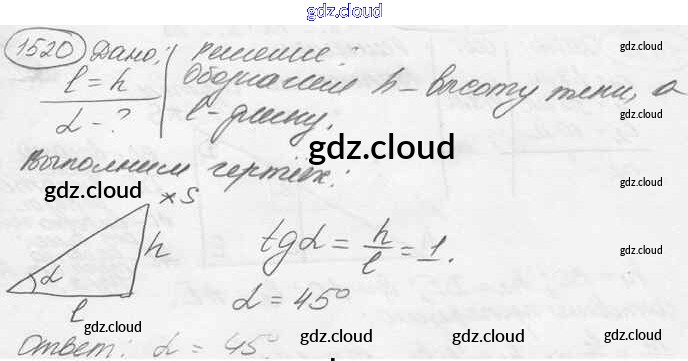 gdz.cloud
1520 Дано: Решение:
l = h Обозначим h – высоту тени, а
α – ? l – длину.
gdz.cloud
Выполним чертёж:
gdz.cloud
* S
h
α
l
tgα = h/l = 1.
α = 45°
Ответ: α = 45°.
gdz.cloud
gdz.cloud
gdz.cloud
gdz.cloud
gdz.cloud
gdz.cloud
gdz.cloud
gdz.cloud